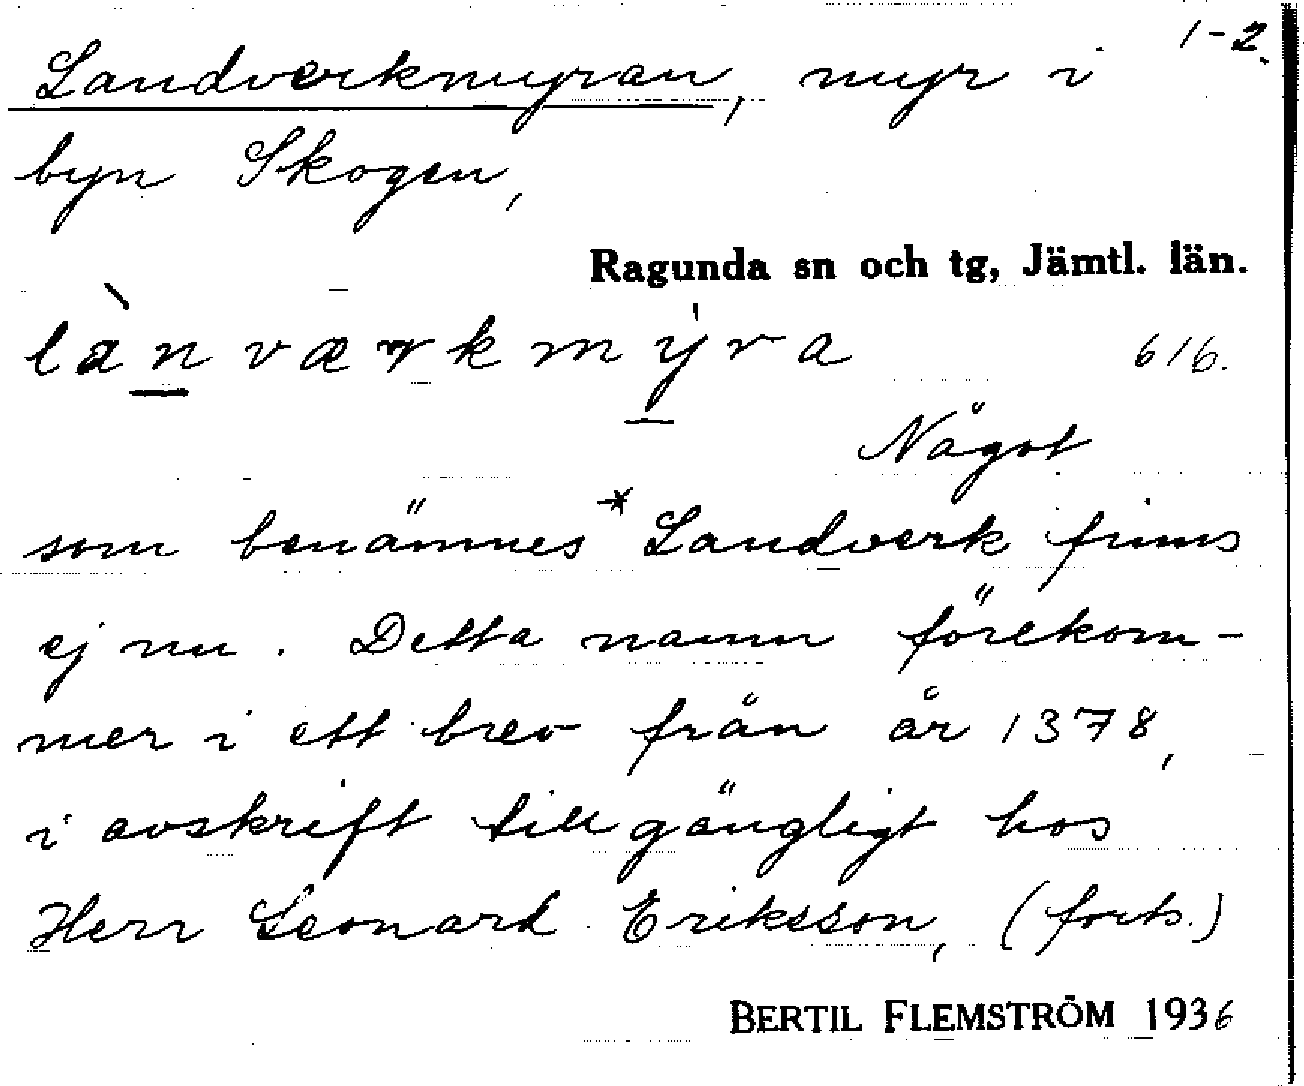 1-2.
Landverkmyran, myr i
byn Skogen,
Ragunda sn och tg, Jämtl. län.
lànværkmýra 616.
Något
som benämnes *Landverk finns
ej nu. Detta namn förekom-
mer i ett brev från år 1378,
i avskrift tillgängligt hos
Herr Leonard Eriksson, (forts.)
BERTIL FLEMSTRÖM 1936